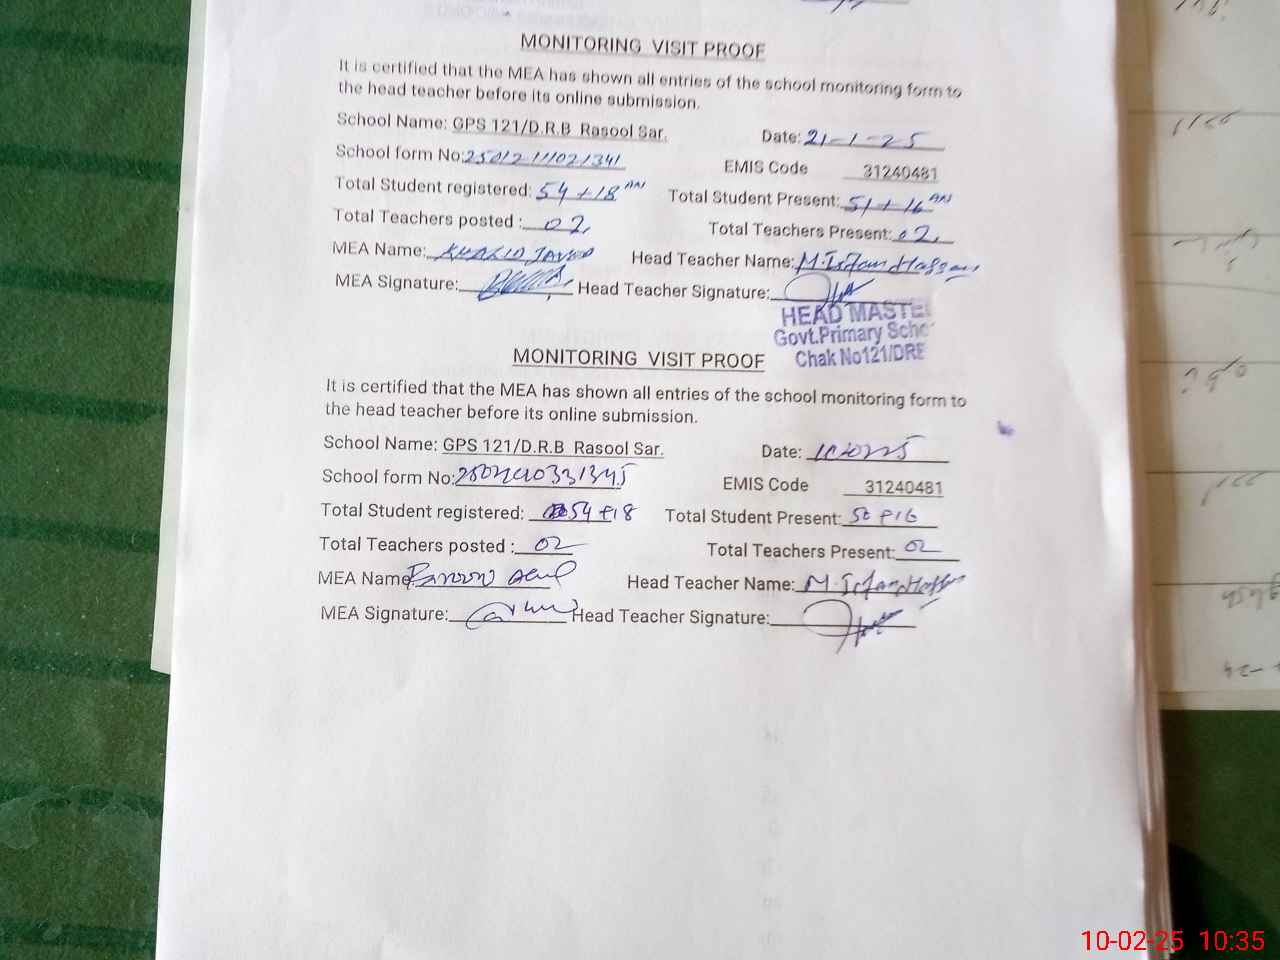 MONITORING VISIT PROOF
It is certified that the MEA has shown all entries of the school monitoring form to
the head teacher before its online submission.
School Name: GPS 121/D.R.B Rasool Sar. Date: 21-1-25
School form No: EMIS Code 31240481
Total Student registered: 54+18 AN Total Student Present: 51+16 AN
Total Teachers posted : 02 Total Teachers Present: 02
MEA Name: KHALID JAVED Head Teacher Name: M. Irfan Hassan
MEA Signature: Head Teacher Signature:
HEAD MASTE
Govt.Primary Scho
Chak No121/DRE
MONITORING VISIT PROOF
It is certified that the MEA has shown all entries of the school monitoring form to
the head teacher before its online submission.
School Name: GPS 121/D.R.B Rasool Sar. Date:
School form No: EMIS Code 31240481
Total Student registered: 54+18 Total Student Present: 50+16
Total Teachers posted : 02 Total Teachers Present: 02
MEA Name Head Teacher Name: M. Irfan Hassan
MEA Signature: Head Teacher Signature:
10-02-25 10:35